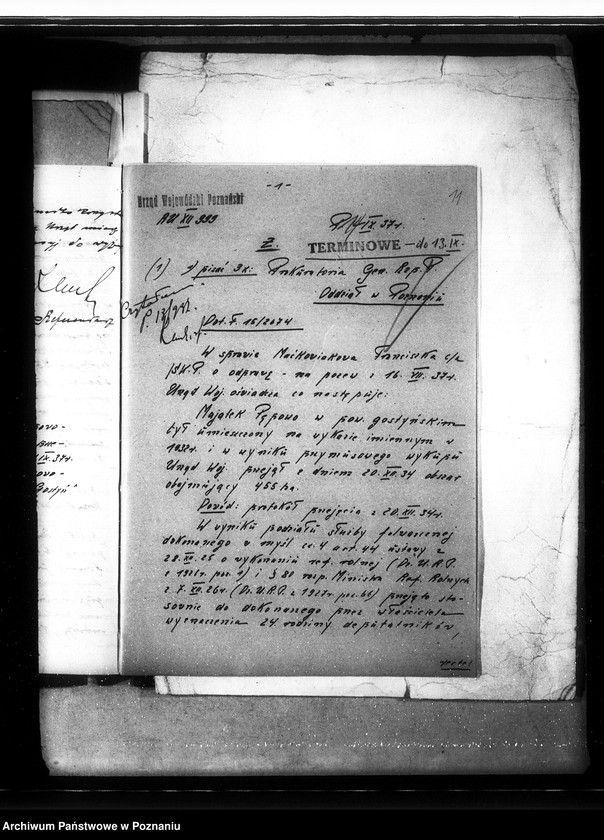 -1-
11
Urząd Wojewódzki Poznański
AU XII 999
IX. 37 r.
Ż.
TERMINOWE — do 13. IX.
(1) 1) pisać 3x: Prokuratoria Gen. Rzp. P.
Oddział w Poznaniu
Dot. F. 15/2674
W sprawie Maćkowiakowa Franciszka c/a
o odprawę - na pozew z 16. VII. 37r.
Urząd Woj. oświadcza co następuje:
Majątek Pępowo w pow. gostyńskim
był umieszczony na wykazie imiennym z
1932r. i w wyniku przymusowego wykupu
Urząd Woj. przejął z dniem 20. XII. 34 obszar
obejmujący 455 ha.
Dowód: protokół przejęcia z 20. XII. 34r.
W wyniku podziału służby folwarcznej
dokonanego w myśl cz. 4 art. 44 ustawy z
28. XII. 25 o wykonaniu ref. rolnej (Dz. U. R. P.
z 1926r. poz. 1) i § 80 rozp. Ministra Ref. Rolnych
z 7. XII. 26r. (Dz. U. R. P. z 1927r. poz. 65) przejęto sto-
sownie do dokonanego przez właściciela
wyznaczenia 24 rodziny deputatników,
verte!
IX. 37r.
Archiwum Państwowe w Poznaniu